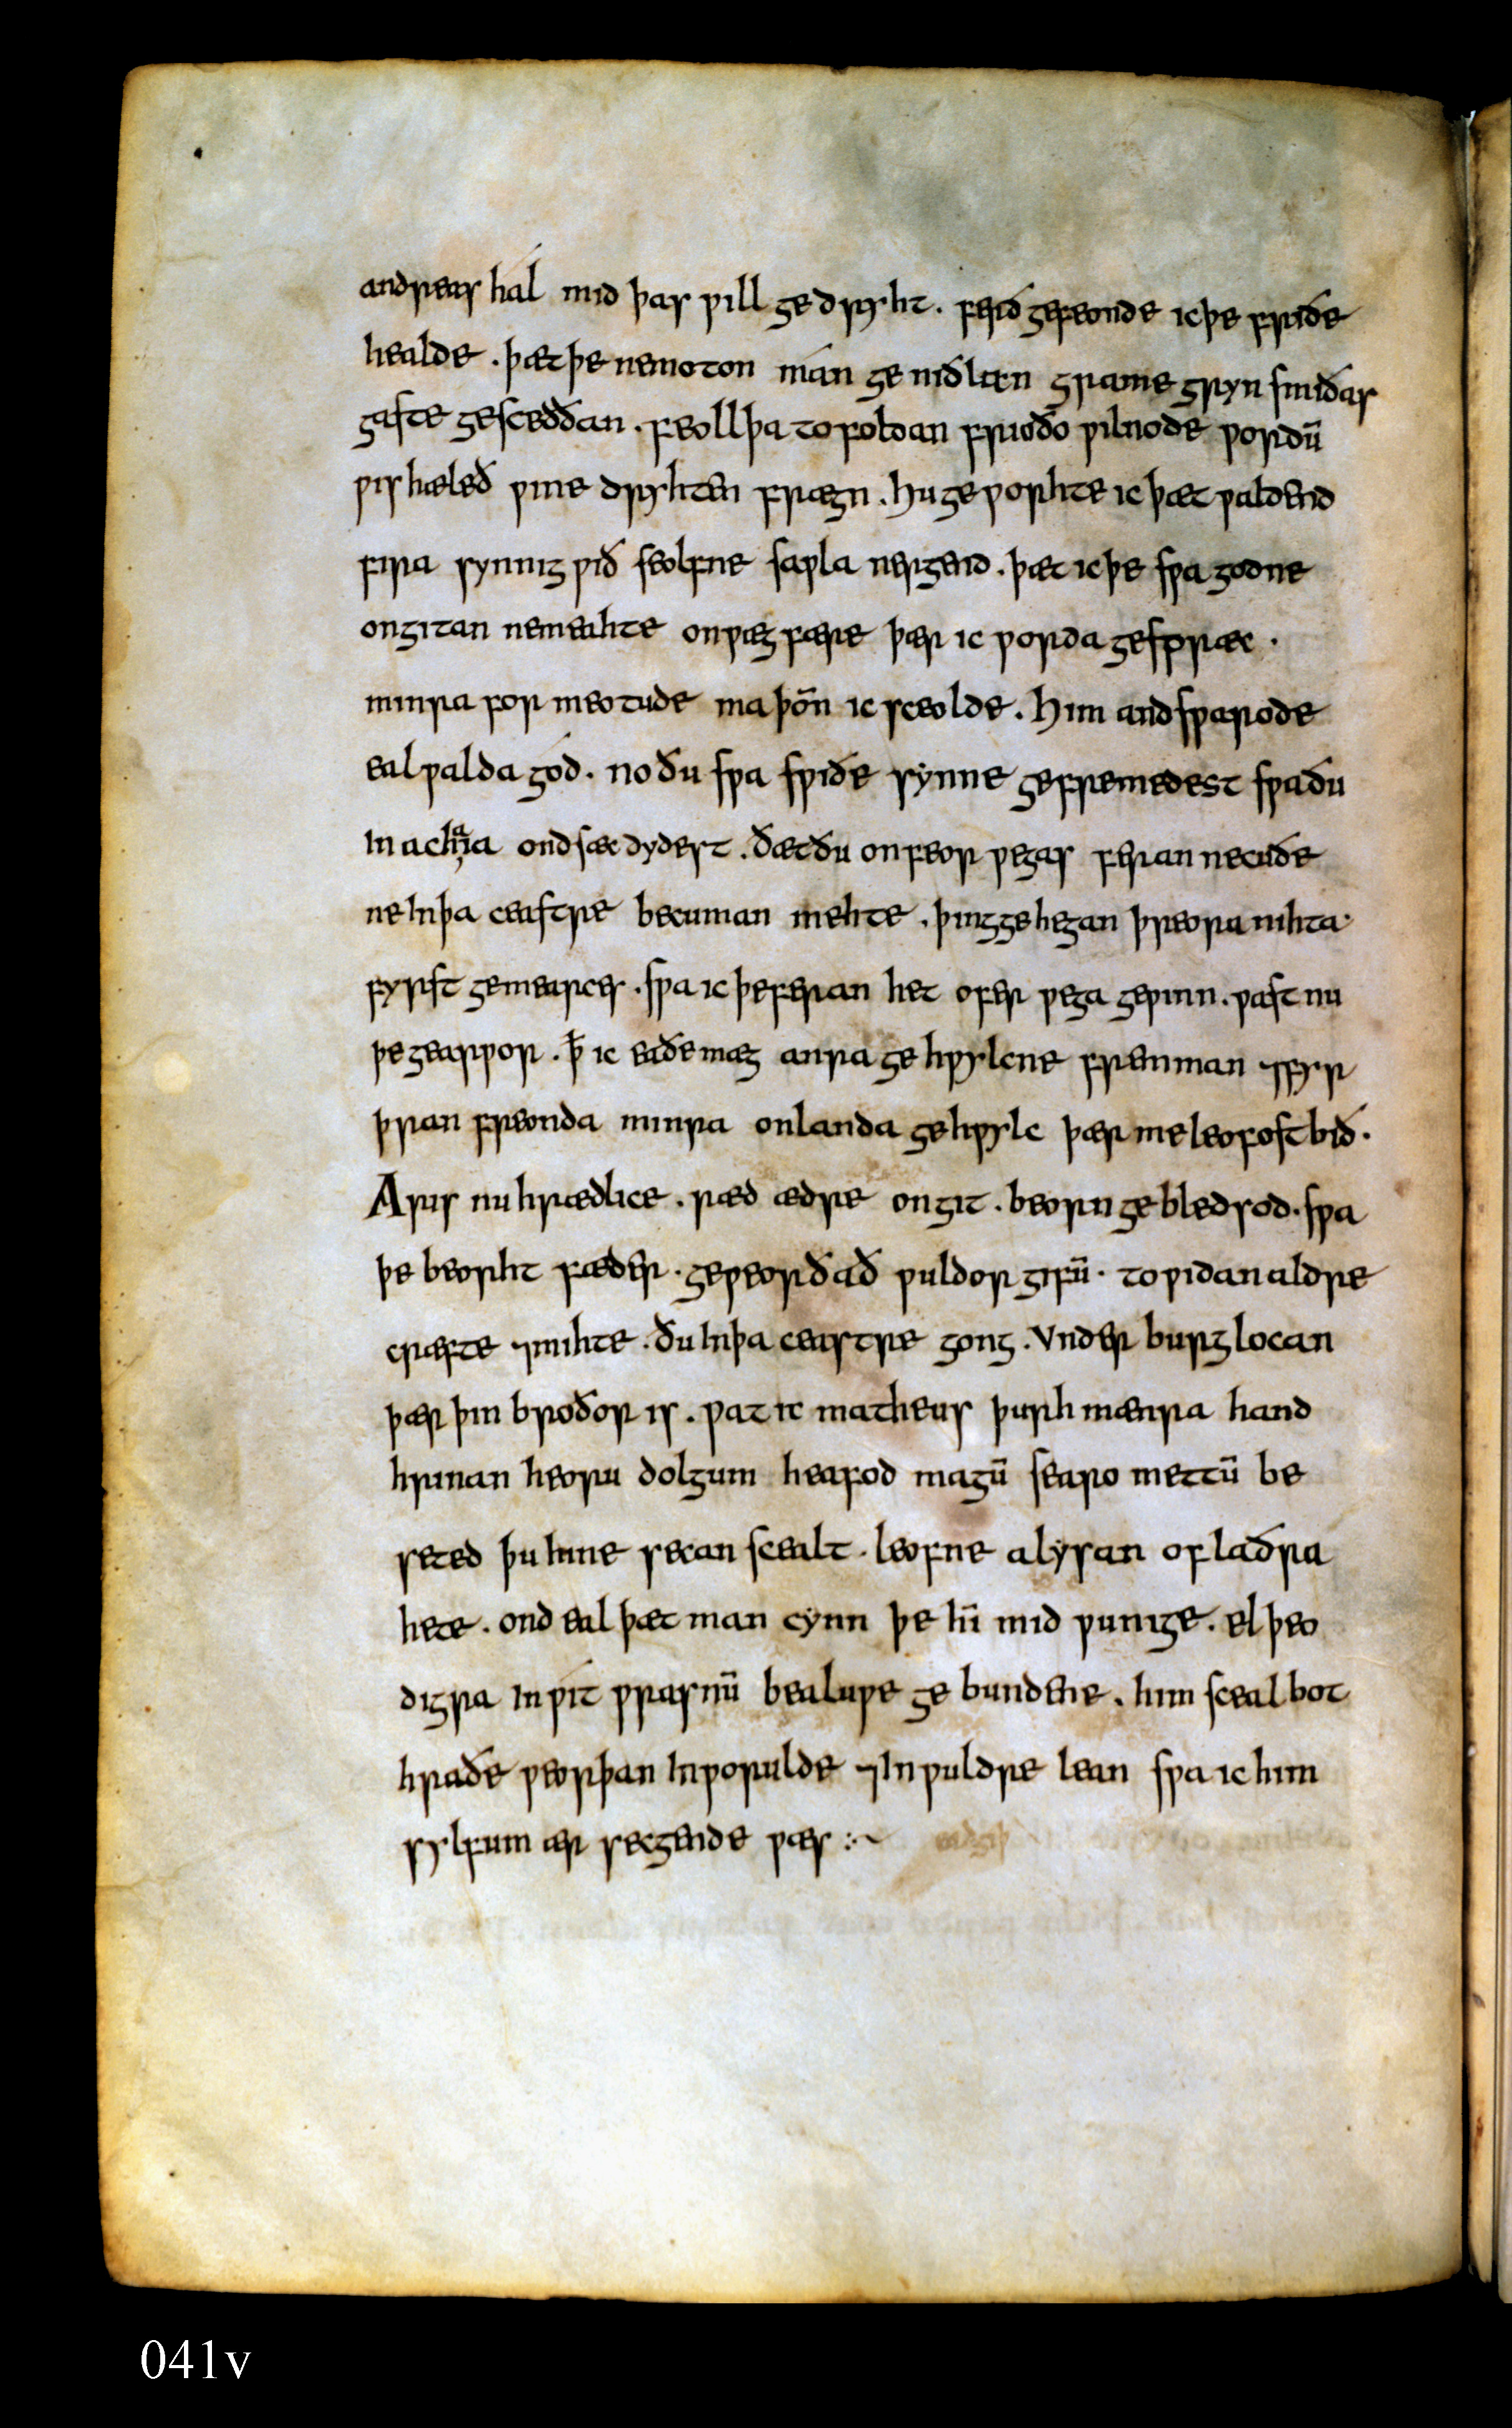 andreas hál mid þas ƿill gedryht. ferð gefeonde ic þe friðe
healde. þæt þe nemoton mán ge niðlan grame gryn smiðas
gaste gesceððan. feoll þa to foldan frioðo ƿilnode ƿordū
ƿis hæleð ƿine dryhten frægn. hu geƿorhte ic þæt ƿaldend
fira synnig ƿið seolfne saƿla nergend. þæt ic þe sƿa godne
ongitan nemeahte onƿæg fære þær ic ƿorda gespræc.
minra for meotude ma þōn ic sceolde. him andsƿarode
ealƿalda gód. no ðu sƿa sƿiðe synne gefremedest sƿa ðu
in achaia ondsæc dydest. ðæt ðu on feor ƿegas feran necuðe
ne in þa ceastre becuman mehte. þing gehegan þreora nihta.
fyrst gemearces. sƿa ic þe feran het ofer ƿega geƿinn. ƿast nu
þe gearƿor. ꝥ ic eaðe mæg anra ge hƿylcne fremman ⁊fyr
þran freonda minra on landa gehƿylc þær me leofost bið.
Aris nu hrædlice. ræd ædre ongit. beorn ge bledsod. sƿa
þe beorht fæder. geƿeorðað ƿuldor gifū. to ƿidan aldre
cræfte ⁊mihte. ðu in þa ceastre gong. under burg locan
þær þin broðor is. ƿat ic matheus þurh mænra hand
hrinan heoru dolgum heafod magū searo mettū be
seted þu hine secan scealt. leofne alysan of laðra
hete. ond eal þæt man cynn þe hī mid ƿunige. el þeo
digra inƿit ƿrasnū bealuƿe ge bundene. him sceal bot
hraðe ƿeorþan in ƿorulde ⁊in ƿuldre lean sƿa ic him
sylfum ær secgende ƿæs :~
041v